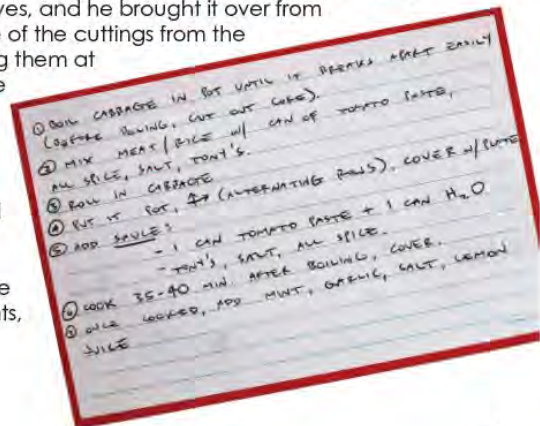 ves, and he brought it over from
e of the cuttings from the
g them at
e
① BOIL CABBAGE IN POT UNTIL IT BREAKS APART EASILY
(BEFORE BOILING, CUT OUT CORE).
② MIX MEAT/RICE W/ CAN OF TOMATO PASTE,
ALL SPICE, SALT, TONY'S.
③ ROLL IN CABBAGE
④ PUT IT POT, (ALTERNATING ROWS), COVER W/ PLATE
⑤ ADD SAUCE:
- 1 CAN TOMATO PASTE + 1 CAN H2O
- TONY'S, SALT, ALL SPICE.
⑥ COOK 35-40 MIN AFTER BOILING, COVER.
⑦ ONCE COOKED, ADD MINT, GARLIC, SALT, LEMON
JUICE
e
nts,